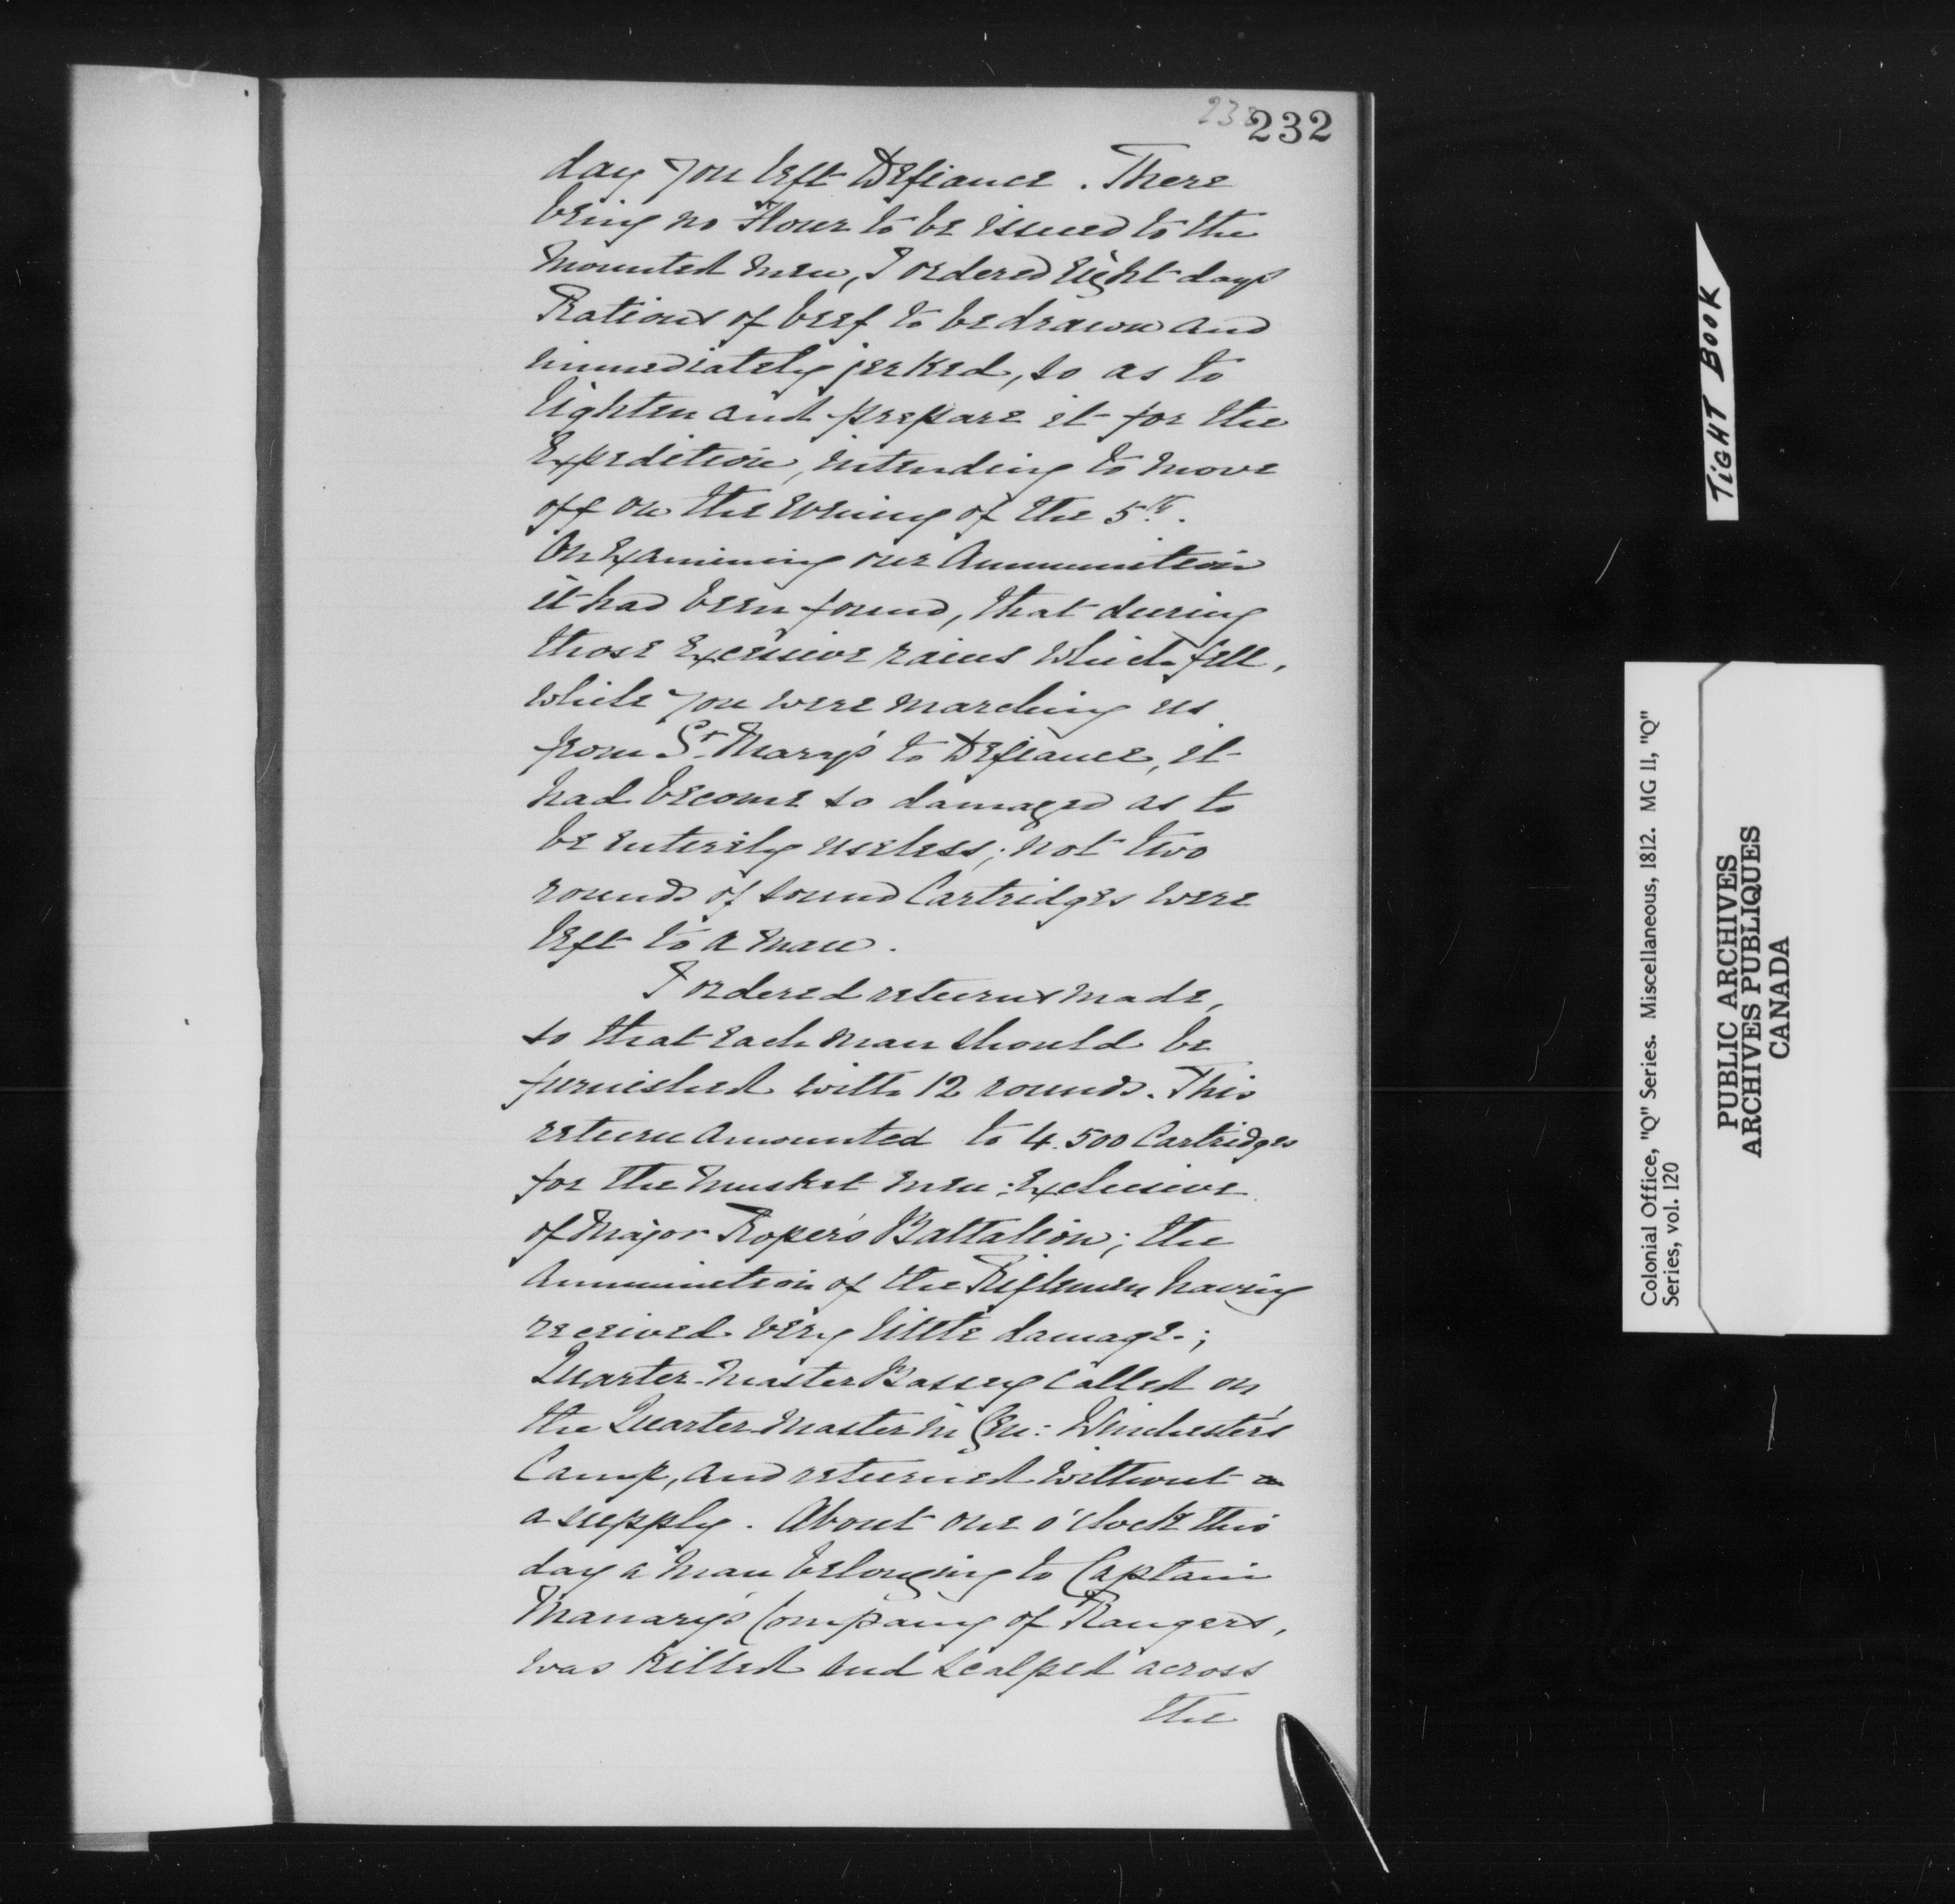 232
day you left Defiance. There
being no Flour to be issued to the
mounted men, I ordered eight days
Rations of beef to be drawn and
immediately jerked, so as to
lighten and prepare it for the
Expedition, intending to move
off on the evening of the 5th.
On Examining our Ammunition
it had been found, that during
those Excessive rains which fell,
while you were marching us
from St. Mary's to Defiance, it
had become so damaged as to
be enterely useless; not two
rounds of sound Cartridges were
left to a man.
I ordered returns made,
so that each man should be
furnished with 12 rounds. This
return amounted to 4.500 Cartridges
for the musket men; Exclusive
of Major Roper's Battalion; the
Ammunition of the Riflemen having
received very little damage;
Quarter-Master Bassey called on
the Quarter Master in Gen: Winchester's
Camp, and returned without a
a supply. About one o'clock this
day a man belonging to Captain
Manary's Company of Rangers,
was killed and scalped across
the
TIGHT BOOK
Colonial Office, "Q" Series. Miscellaneous, 1812. MG 11, "Q"
Series, vol. 120
PUBLIC ARCHIVES
ARCHIVES PUBLIQUES
CANADA